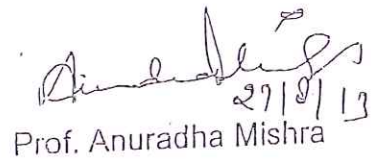 27/8/13
Prof. Anuradha Mishra